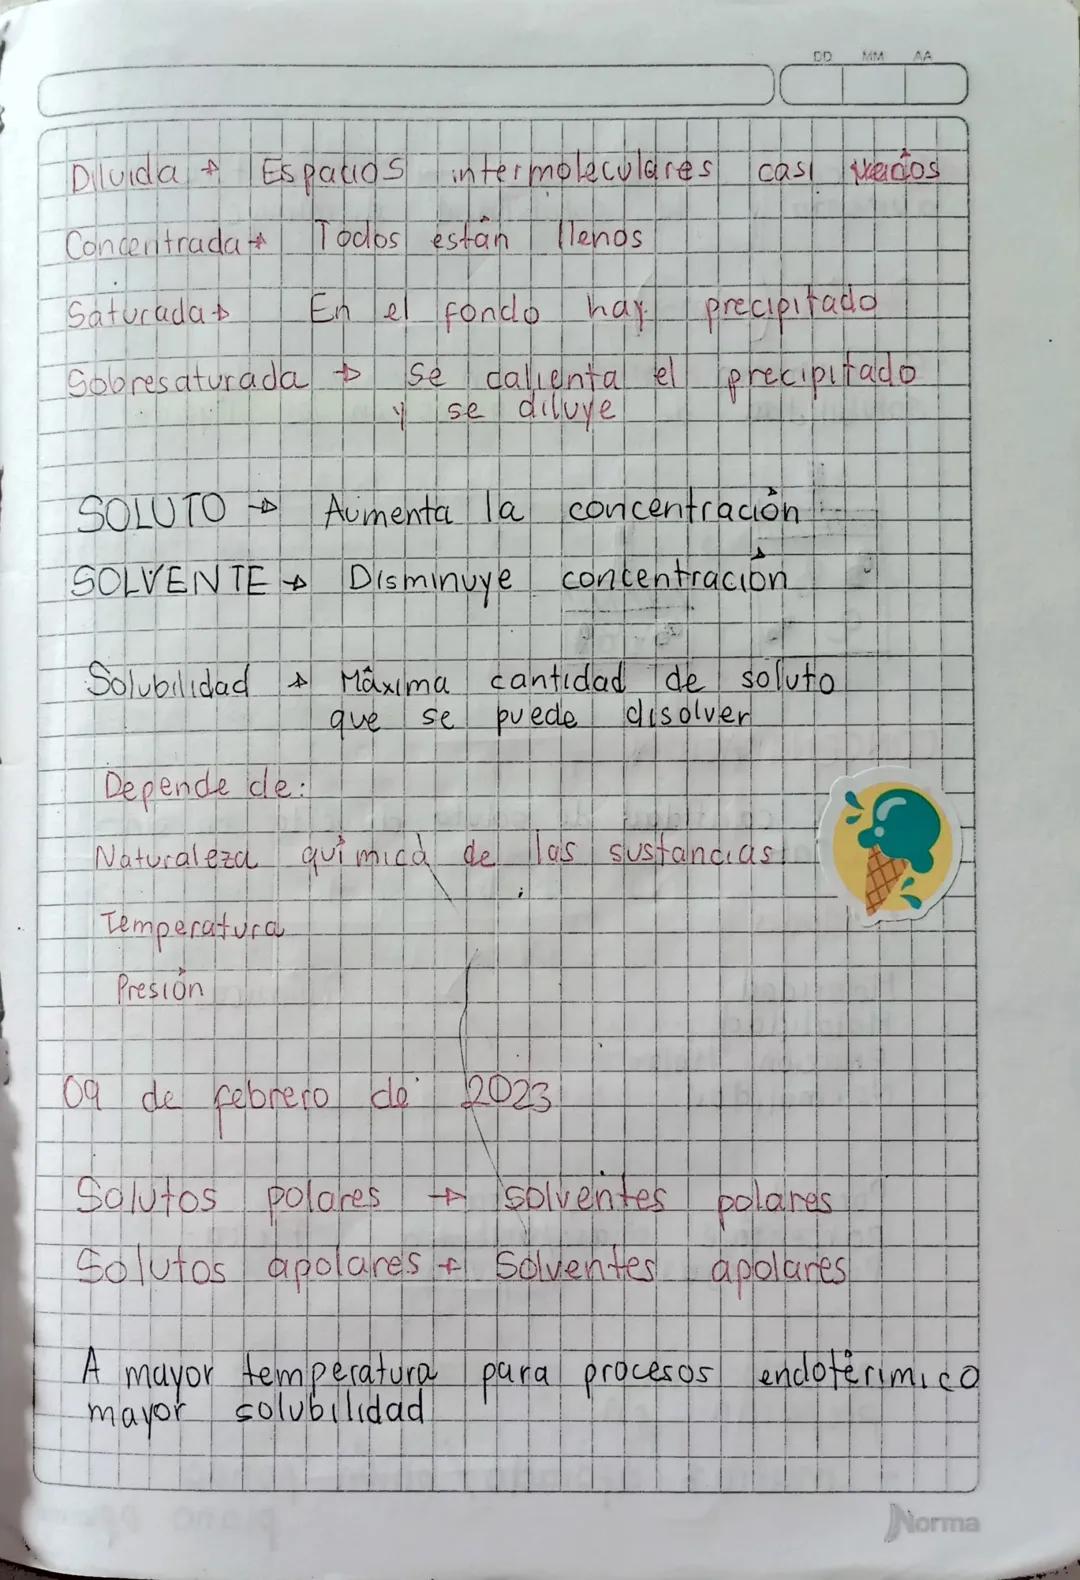 DD MM AA
Diluida → Espacios intermoleculares casi vacíos
Concentrada → Todos están llenos
Saturada → En el fondo hay precipitado
Sobresaturada → se calienta el precipitado
y se diluye
SOLUTO → Aumenta la concentración
SOLVENTE → Disminuye concentración
Solubilidad → Máxima cantidad de soluto
que se puede disolver
Depende de:
Naturaleza química de las sustancias
Temperatura
Presión
09 de febrero de 2023
Solutos polares → solventes polares
Solutos apolares → Solventes apolares
A mayor temperatura para procesos endotérimico
mayor solubilidad
Norma